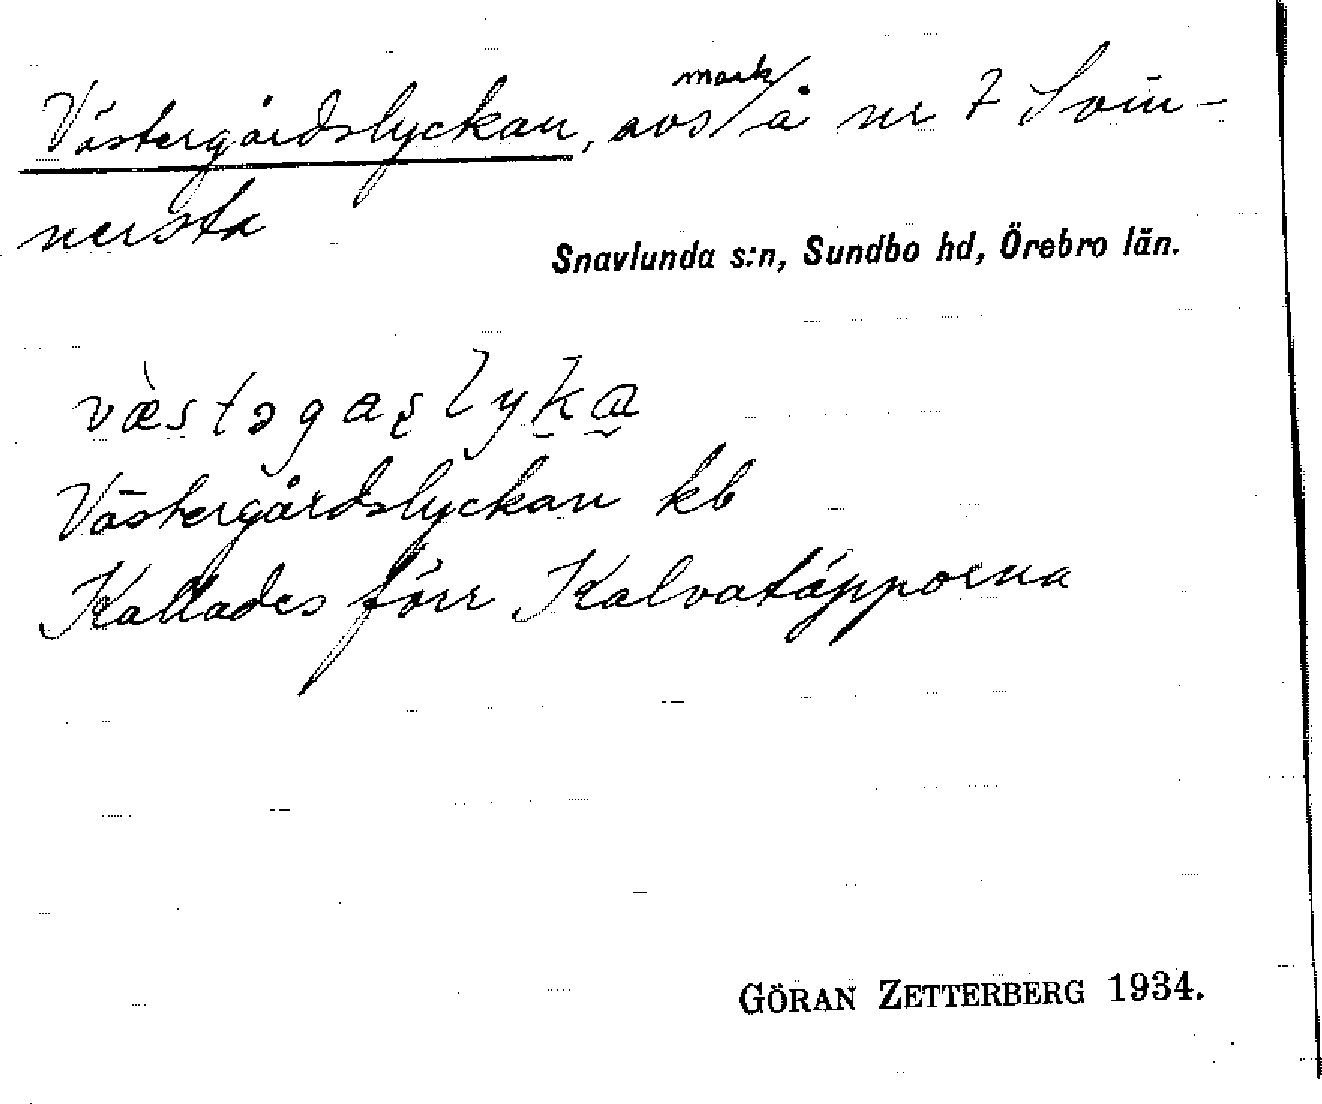 Västergårdslyckan, avs mark/ å nr 7 Svin-
nersta
Snavlunda s:n, Sundbo hd, Örebro län.
væ̀stəgaʂlyka
Västergårdslyckan kb
Kallades förr Kalvatäpporna
GÖRAN ZETTERBERG 1934.